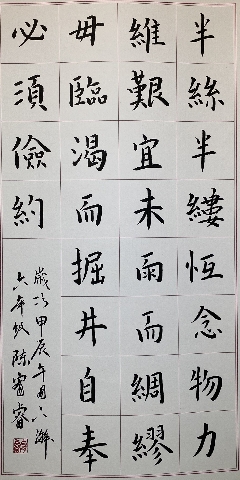 半絲半縷恆念物力
維艱宜未雨而綢繆
毋臨渴而掘井自奉
必須儉約
歲次甲辰
六年级陈睿